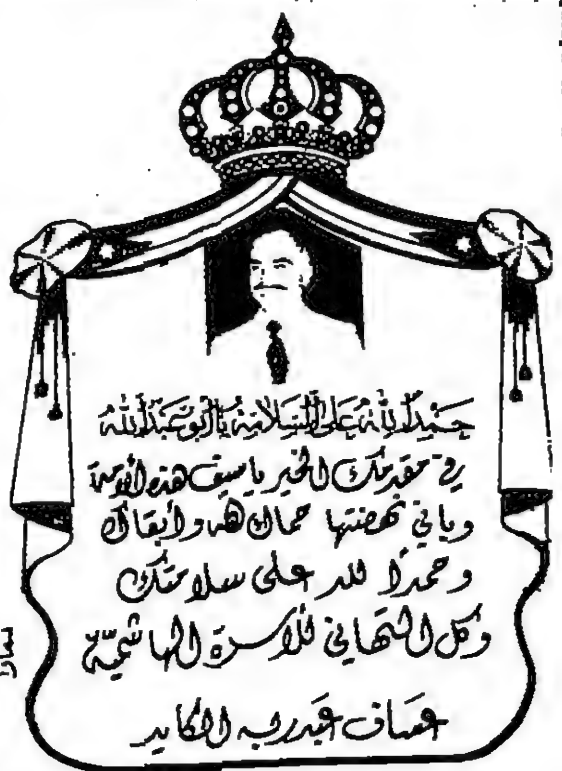 حمداً لله على السلامة يا أبو عبدالله
في مقدمك الخير يا سيف هذه الأمة
وباني نهضتها حماك الله وأبقاك
وحمداً لله على سلامتك
وكل التهاني للأسرة الهاشمية
عساف عبدربه الكايد